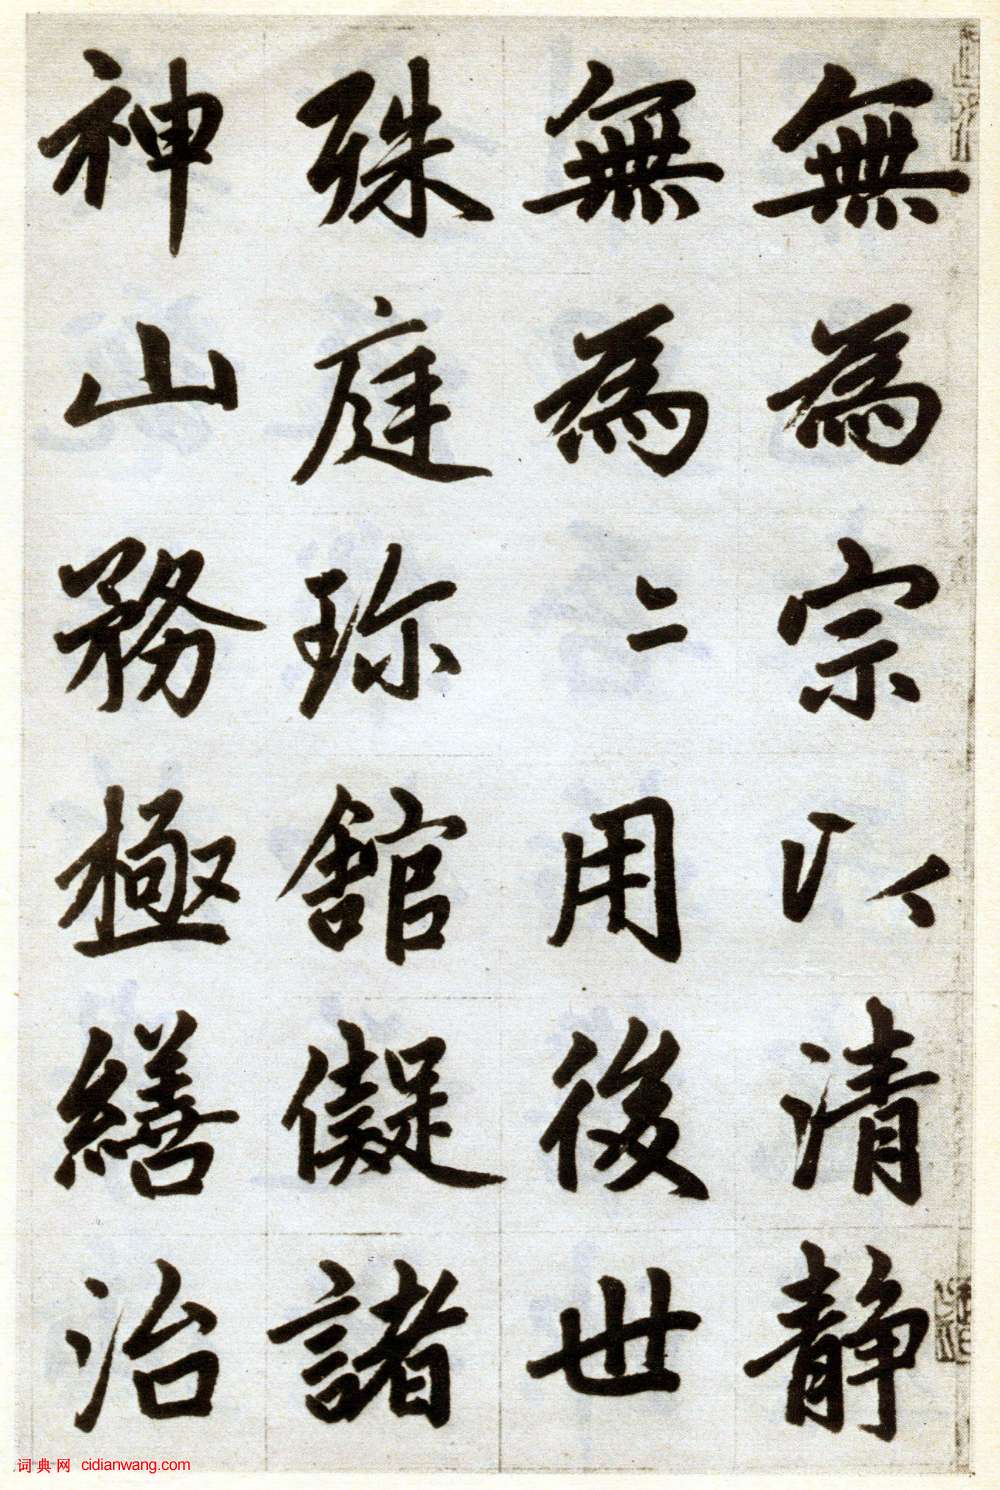 無為宗以清静
無為二用後世
殊庭珎舘儗諸
神山務極繕治
词典网 cidianwang.com